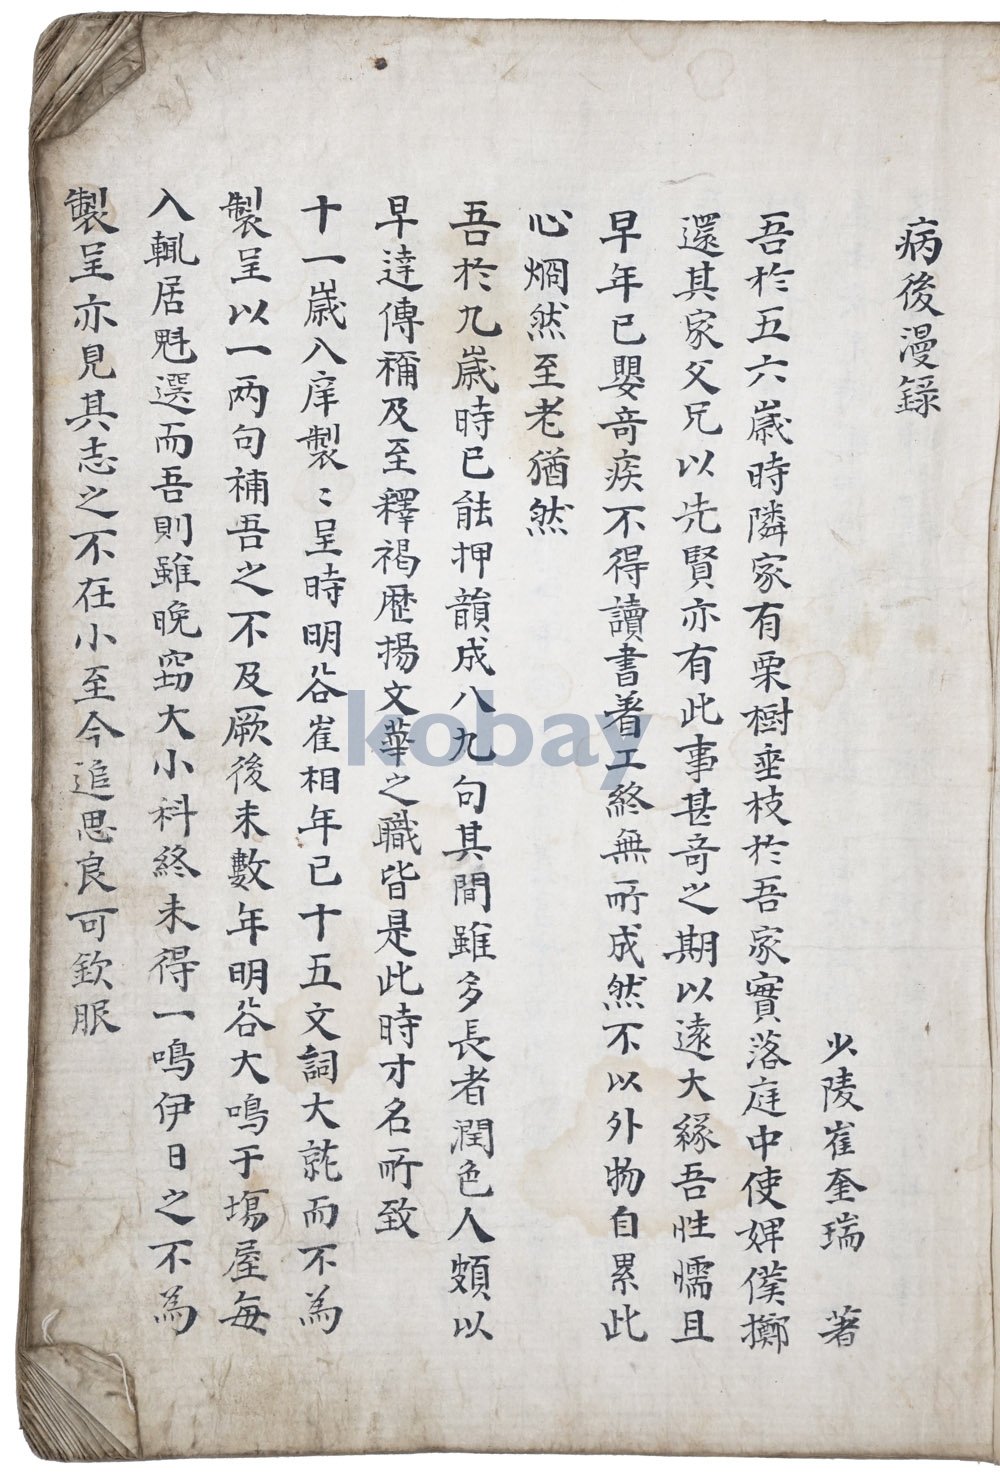 病後漫録
少陵崔奎瑞 著
吾於五六歲時隣家有栗樹垂枝於吾家實落庭中使婢僕擲
還其家父兄以先賢亦有此事甚竒之期以遠大緣吾性懦且
早年已嬰竒疾不得讀書着工終無所成然不以外物自累此
心烱然至老猶然
吾於九歲時已能押韻成八九句其間雖多長者潤色人頗以
早達傳稱及至釋褐歷揚文華之職皆是此時才名所致
十一歲入庠製〻呈時明谷崔相年已十五文詞大就而不為
製呈以一两句補吾之不及厥後未數年明谷大鳴于場屋每
入輒居魁選而吾則雖晚竊大小科終未得一鳴伊日之不為
製呈亦見其志之不在小至今追思良可欽服
kobay